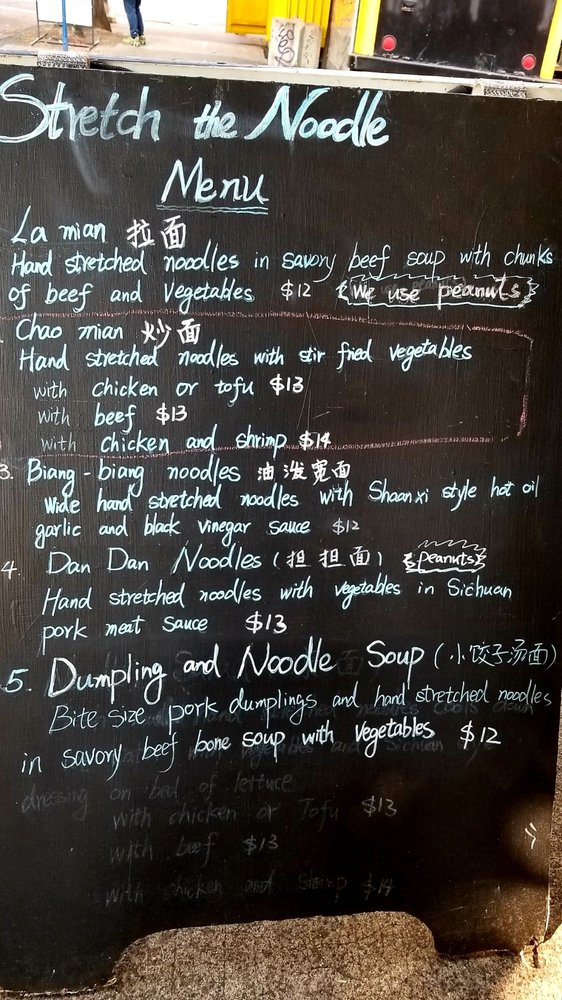 Stretch the Noodle
Menu
La mian 拉面
Hand stretched noodles in savory beef soup with chunks
of beef and vegetables $12 we use peanuts
Chao mian 炒面
Hand stretched noodles with stir fried vegetables
with chicken or tofu $13
with beef $13
with chicken and shrimp $14
3. Biang-biang noodles 油泼宽面
wide hand stretched noodles with Shaanxi style hot oil
garlic and black vinegar sauce $12
4. Dan Dan Noodles (担担面) peanuts
Hand stretched noodles with vegetables in Sichuan
pork meat sauce $13
5. Dumpling and Noodle Soup (小饺子汤面)
Bite size pork dumplings and hand stretched noodles
in savory beef bone soup with vegetables $12
dressing on bed of lettuce
with chicken or Tofu $13
with beef $13
with chicken and shrimp $14